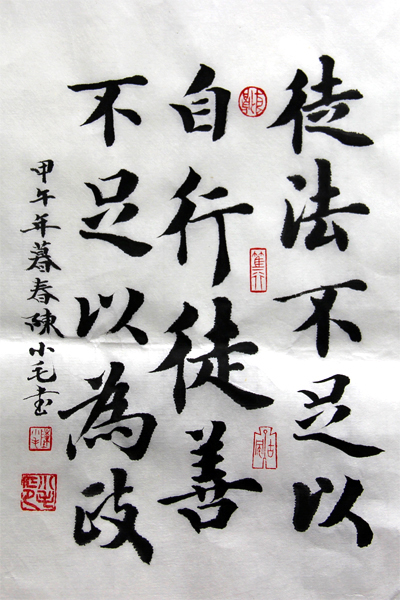 徒法不足以
自行徒善
不足以為政
甲午年暮春陳小毛書
篤行